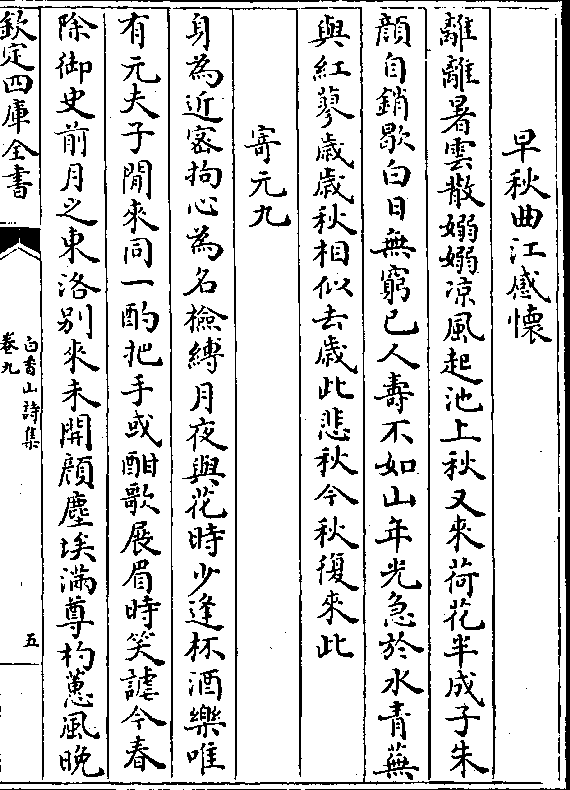 早秋曲江感懷
離離暑雲散嫋嫋凉風起池上秋又來荷花半成子朱
顔自銷歇白日無窮已人壽不如山年光急於水青蕪
與紅蓼歳歳秋相似去歳此悲秋今秋復來此
寄元九
身為近宻拘心為名檢縛月夜與花時少逢杯酒樂唯
有元夫子閒來同一酌把手或酣歌展眉時笑謔今春
除御史前月之東洛别來未開顔塵埃滿尊杓蕙風晩
欽定四庫全書
白香山詩集
卷九
五